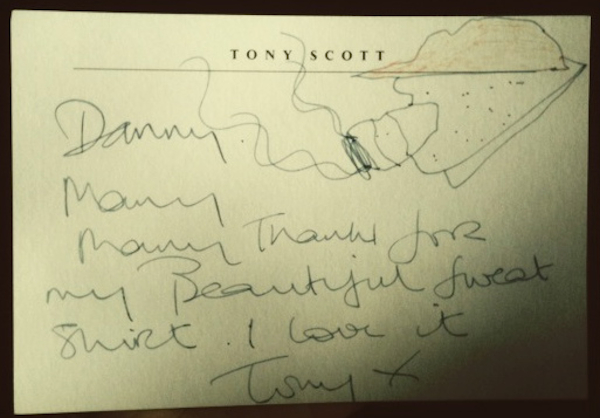 TONY SCOTT
Danny.
Many
Many Thanks for
my Beautiful Sweat
Shirt. I love it
Tony X